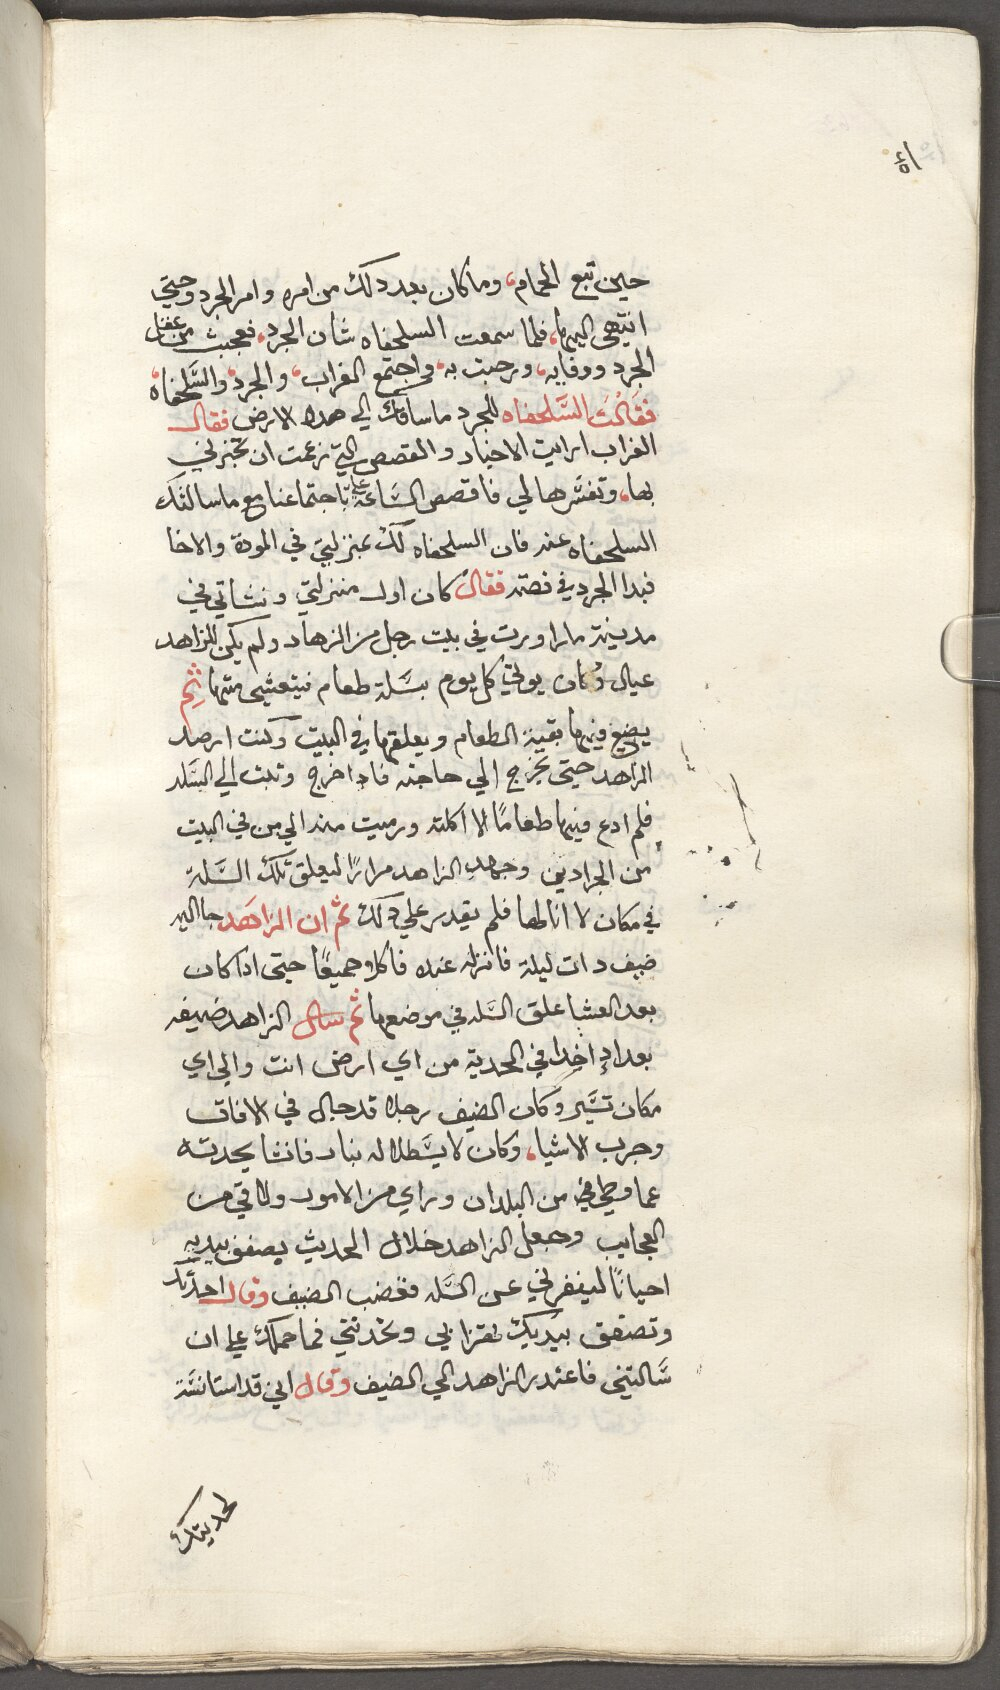 حين تبع الحمام، وما كان بعد دلك من امره وامر الجرد وحتي
انتهي اليها، فلما سمعت السلحفاه شان الجرد، فعجبت من عقل
الجرد ووفايه، ورحبت به، واجتمع الغراب، والجرد، والسَّلحفاه،
فقالت السَّلحفاه للجرد ما ساقك الي هده الارض فقال
الغراب ارايت الاخبار والقصص التي زعمت ان تخبرني
بها، وتفسَّرها لي فاقصص السَّاعه علي باجتماعنا مع ما سالتك
السلحفاه عنه فان السلحفاه لك بمنزلتي في المودة والاخا
فبدا الجرد في قصته فقال كان اول منزلتي ونشاتي في
مدينة ماراورت في بيت رجل من الزهاد ولم يكن للزاهد
عيال وكان يوتي كل يوم بسَّلة طعام فيتعشي منها ثم
يضع فيها بقية الطعام ويعلقها في البيت وكنت ارصد
الزاهد حتي يخرج الي حاجته فادا خرج وتبت الي السَّله
فلم ادع فيها طعامًا الا اكلته ورميت منه الي من في البيت
من الجرادين وجهد الزاهد مرارًا ليعلق تلك السَّلة
في مكان لا انالها فلم يقدر علي دلك ثم ان الزاهد جا اليه
ضيف دات ليلة فانزله عنده فاكلا جميعًا حتي ادا كان
بعد العشا علق السَّله في موضعها ثم سال الزاهد ضيفه
بعد اد اخدا في الحديث من اي ارض انت والي اي
مكان تسَّير وكان الضيف رجلا قد جال في الافاق
وجرب الاشيا، وكان لا يسَّطلا له بنار فانشا يحدثه
عما وطي من البلدان وراي من الامور ولاقي من
العجايب وجعل الزاهد خلال الحديث يصفق بيديه
احيانًا لينفرني عن السَّله فغضب الضيف وقال احدثك
وتصفق بيديك تهزا بي وبحديثي فما حملك علي ان
سَّالتني فاعتدر الزاهد الي الضيف وقال اني قد استانسَّة
لحديتك